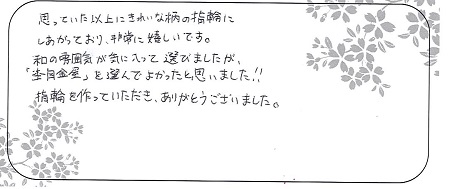 思っていた以上にきれいな柄の指輪に
しあがっており、非常に嬉しいです。
和の雰囲気が気に入って選びましたが、
「杢目金屋」を選んでよかったと思いました!!
指輪を作っていただき、ありがとうございました。